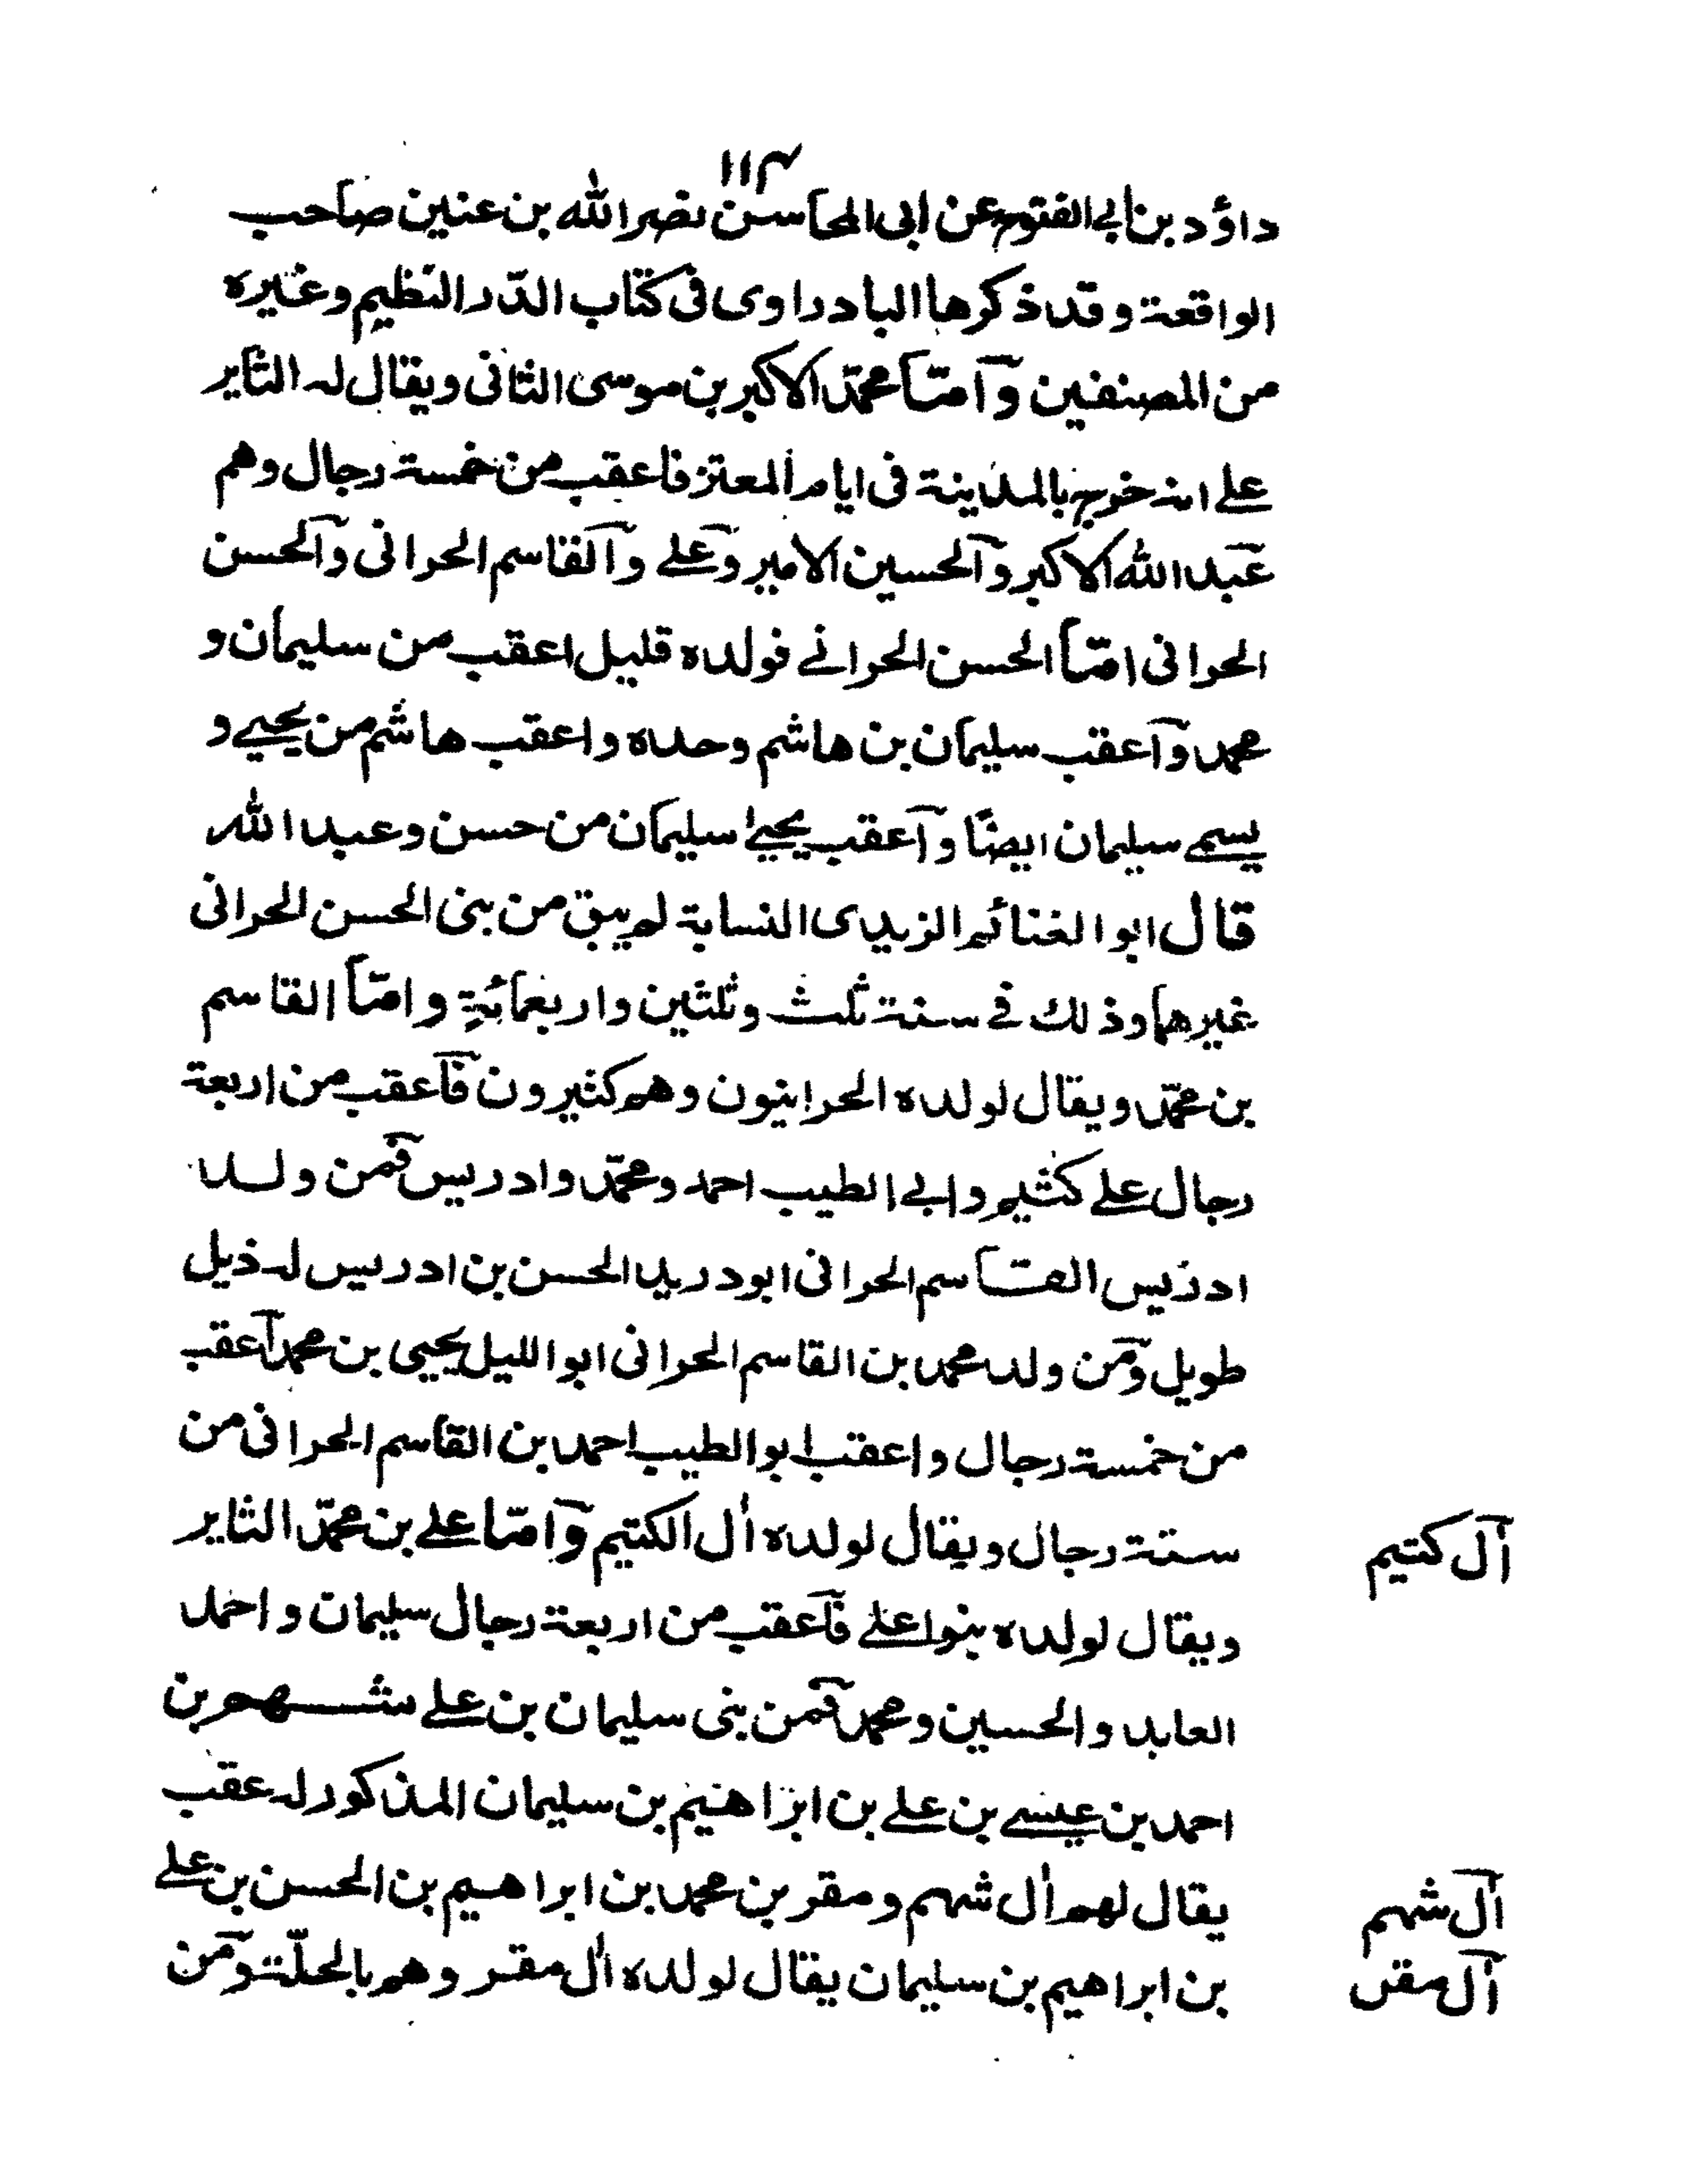 ١١٣
داؤد بن ابي الفتوح عن ابى المحاسن نصر الله بن عنين صاحب
الواقعة وقد ذكرها البادراوى فى كتاب الدّر النّظيم وغيره
من المصنفين وآمّا محمّد الاكبر بن موسى الثانى ويقال له الثاير
على انه خرج بالمدينة فى ايام المعتز فاعقب من خمسة رجال وهم
عبد الله الاكبر والحسين الامير وعلى والقاسم الحرانى والحسن
الحرانى امّا الحسن الحرانے فولده قليل اعقب من سليمان و
محمد وآعقب سليمان بن هاشم وحده واعقب هاشم من يحيے و
يسمے سليمان ايضًا وآعقب يحيے سليمان من حسن وعبد الله
قال ابو الغنائم الزيدى النسابة لم يبق من بنى الحسن الحرانى
غيرهما وذلك فے سنة ثلث وثلثين واربعمائة وامّا القاسم
بن محمّد ويقال لولده الحرانيون وهم كثيرون فآعقب من اربعة
رجال علے كثيم وابي الطيب احمد ومحمّد وادريس فمن ولد
ادريس القاسم الحرانى ابو دريد الحسن بن ادريس له ذيل
طويل ومن ولد محمد بن القاسم الحرانى ابو الليل يحيى بن محمد آعقب
من خمسة رجال واعقب ابو الطيب احمد بن القاسم الحرانى من
ستة رجال ويقال لولده اٰل الكتيم وآمّا علے بن محمّد الثاير
آل كتيم
ويقال لولده بنوا علے فآعقب من اربعة رجال سليمان واحمد
العابد والحسين ومحمد فمن بنى سليمان بن علے شهم بن
احمد بن عيسے بن علے بن ابراهيم بن سليمان المذكور له عقب
يقال لهم اٰل شهم ومقر بن محمد بن ابراهيم بن الحسن بن علے
آل شهم
بن ابراهيم بن سليمان يقال لولده اٰل مقر وهم بالحلّة ومن
آل مقر